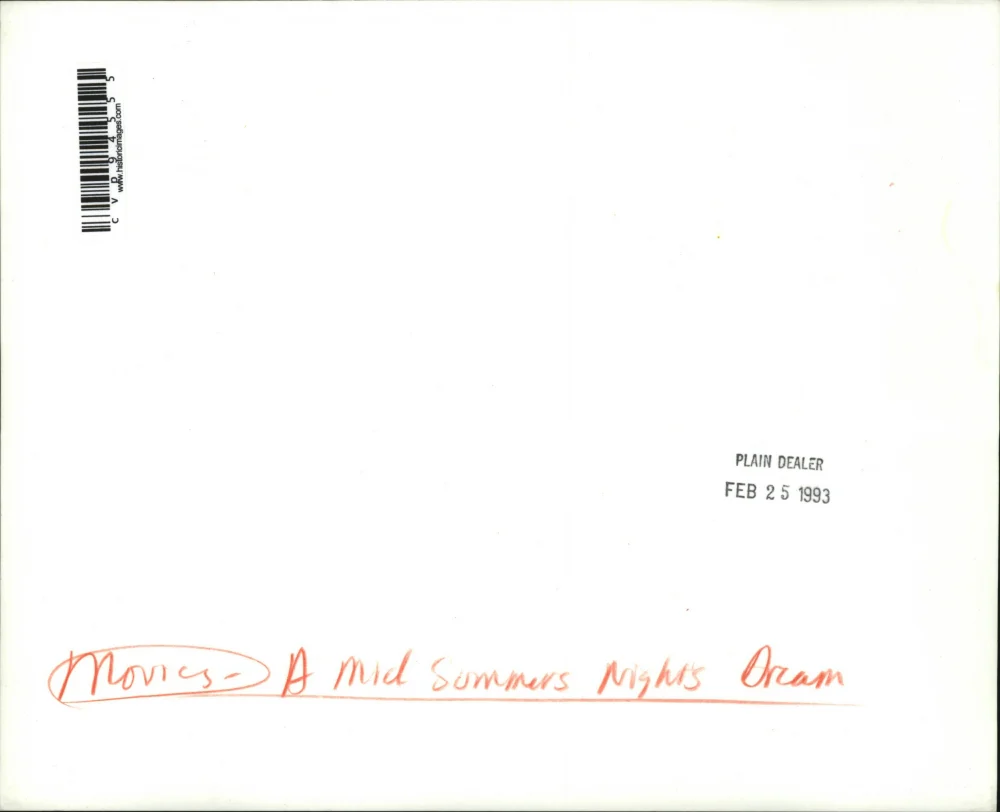 cvp94555
www.historicimages.com
PLAIN DEALER
FEB 25 1993
Movies - A Mid Sommers Night's Dream